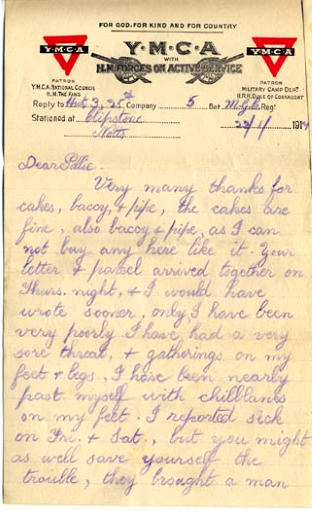 FOR GOD, FOR KING AND FOR COUNTRY
Y·M·C·A
WITH
H.M. FORCES ON ACTIVE SERVICE
Y·M·C·A
Y·M·C·A
PATRON
Y.M.C.A. NATIONAL COUNCIL
H.M. THE KING
PATRON
MILITARY CAMP DEPT.
H.R.H. DUKE OF CONNAUGHT
Reply to Hut 3, 25th Company 5 Bat M.G.C. Regt
Stationed at Clipstone 191
Notts
Dear Pollie
Very many thanks for
cakes, baccy, & pipe, the cakes are
fine, also baccy & pipe, as I can
not buy any here like it. Your
letter & parcel arrived together on
Thurs. night, & I would have
wrote sooner, only I have been
very poorly I have had a very
sore throat, & gatherings on my
feet & legs, I have been nearly
past myself with chilblains
on my feet. I reported sick
on Fri. & Sat., but you might
as well save yourself the
trouble, they brought a man